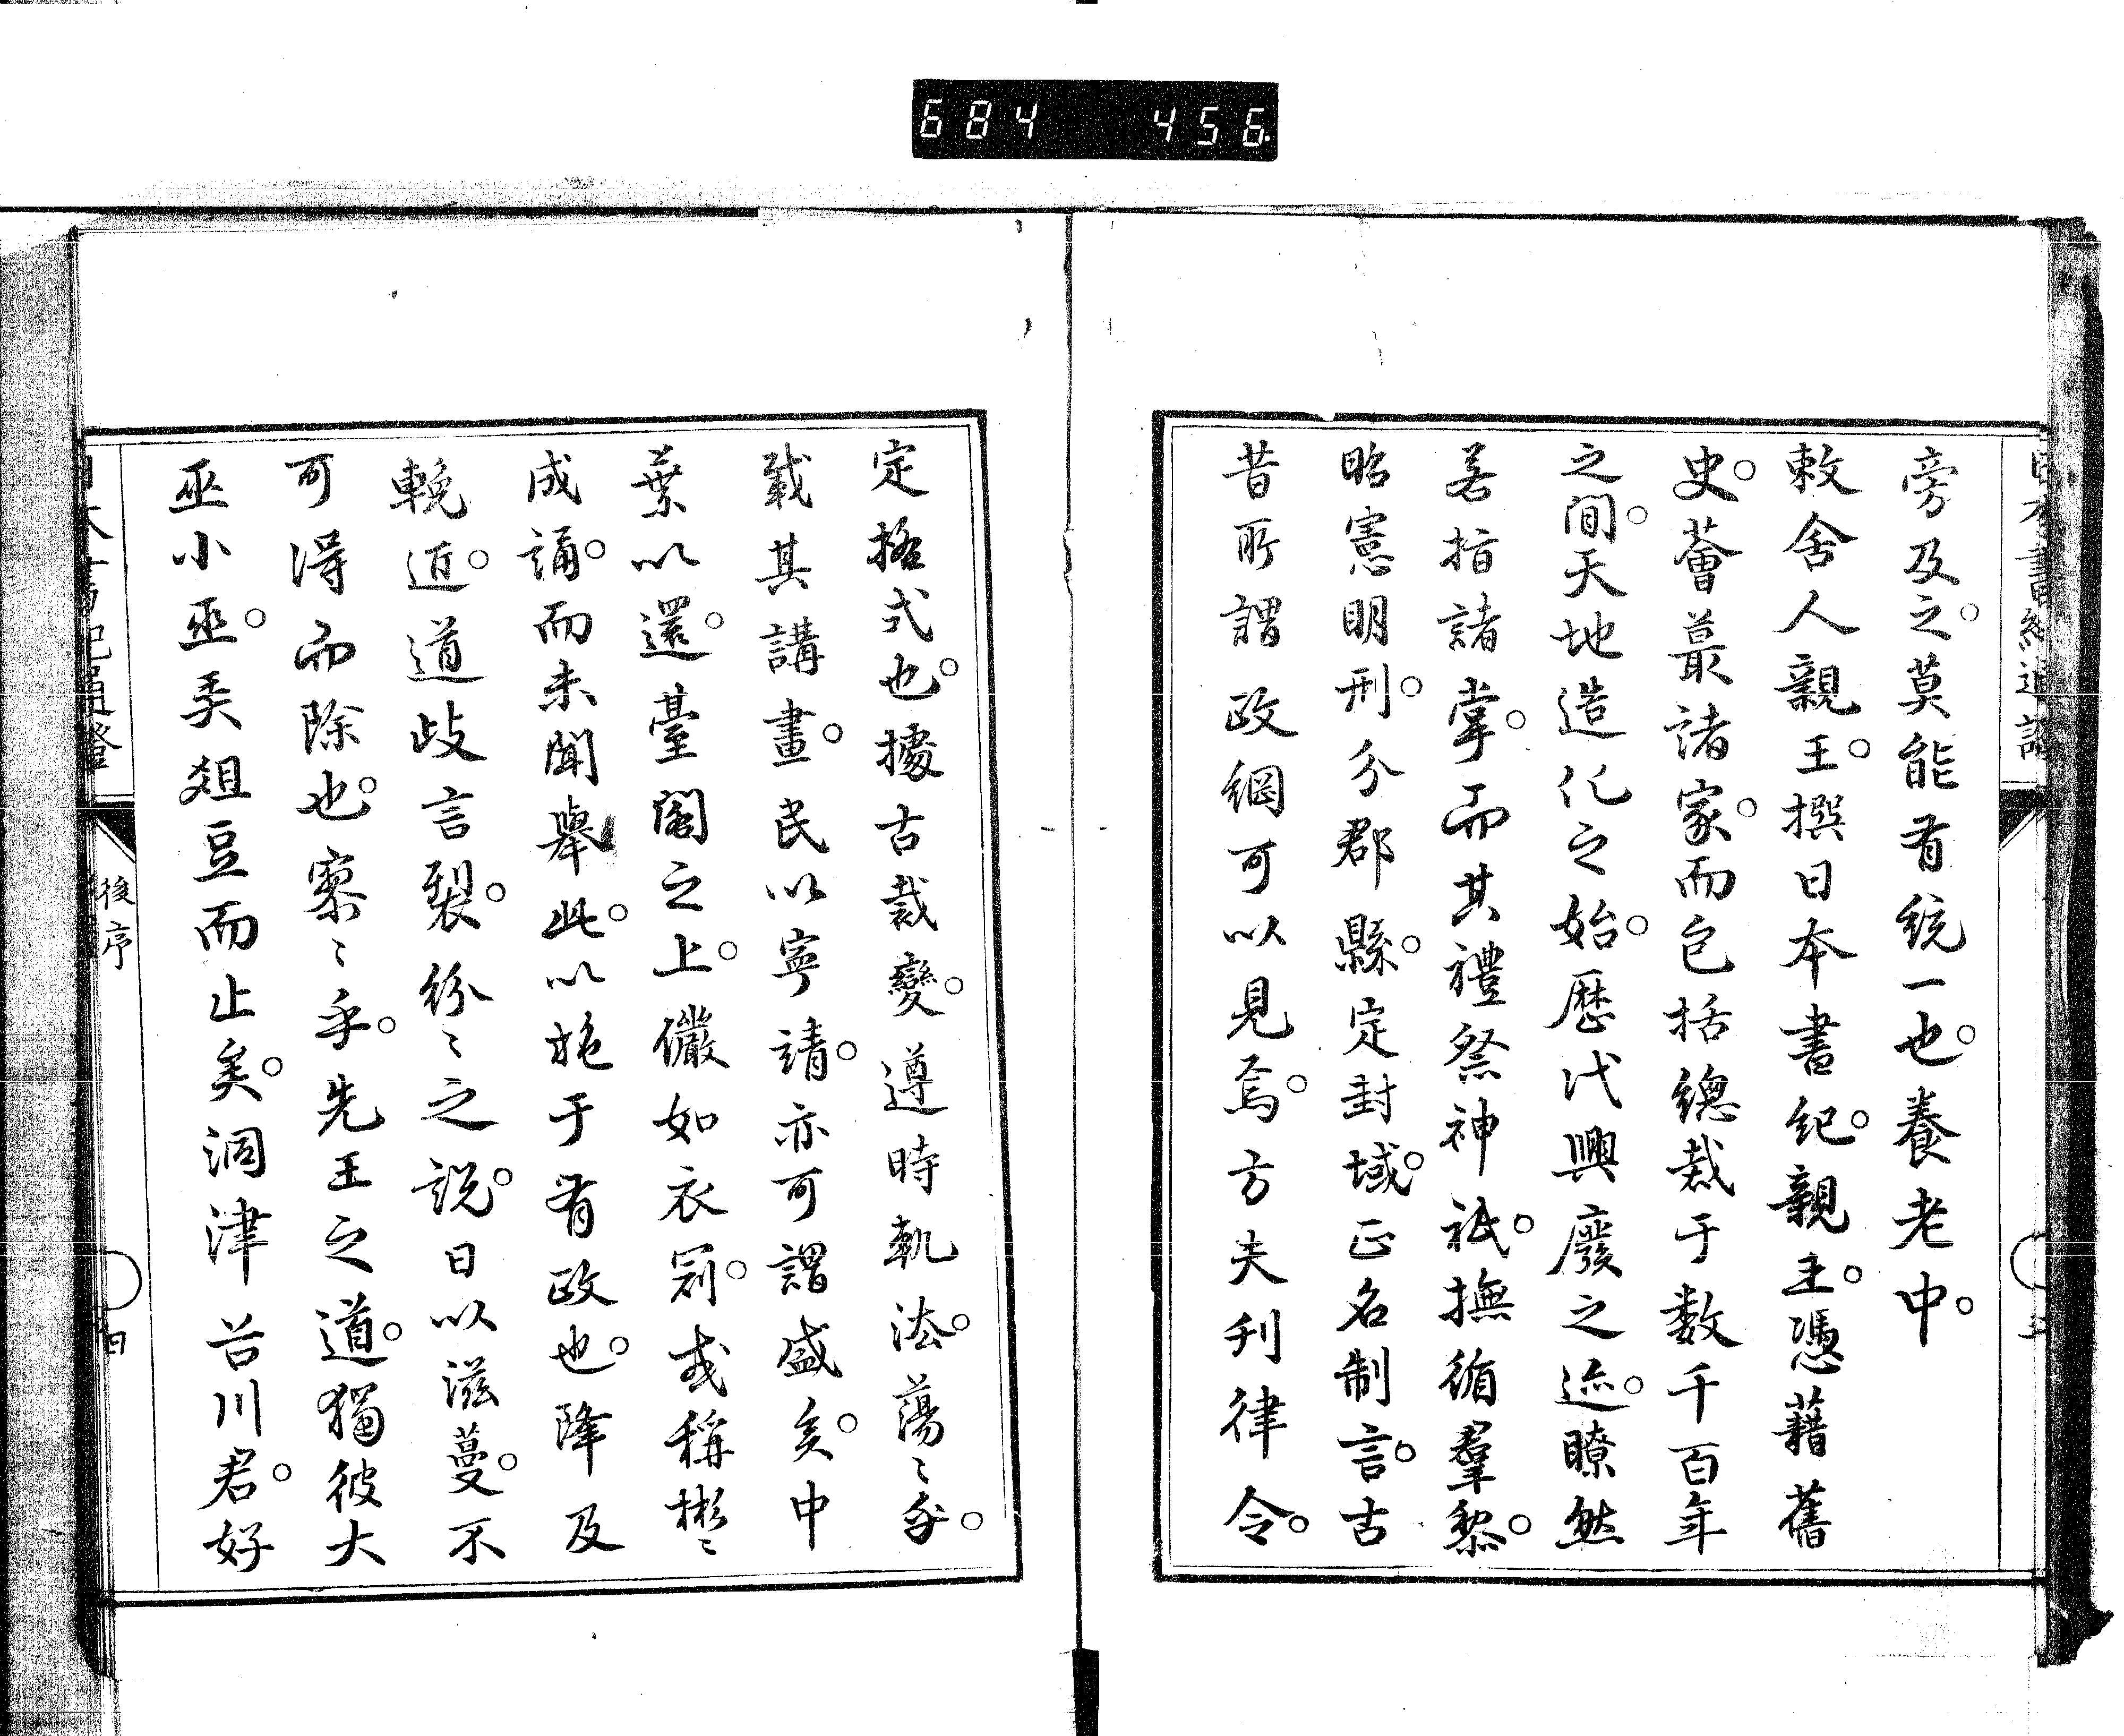 684 456.
旁及之。莫能有統一也。養老中。
敕舍人親王。撰日本書紀。親王。憑藉舊
史。薈蕞諸家。而包括總裁于數千百年
之間。天地造化之始。歷代興廢之迹。瞭然
若指諸掌。而其禮祭神祇。撫循羣黎。
昭憲明刑。分郡縣。定封域。正名制言。古
昔所謂政綱可以見焉。方夫刊律令。
定格式也。據古裁變。遵時軌法。蕩〻乎。
載其講畫。民以寧靖。亦可謂盛矣。中
葉以還。臺閣之上。儼如衣冠。或稱彬〻
成誦。而未聞舉此。以施于有政也。降及
輓近。道歧言裂。紛〻之說。日以滋蔓。不
可得而除也。寥〻乎。先王之道。獨彼大
巫小巫。奚俎豆而止矣。洞津谷川君。好
後序